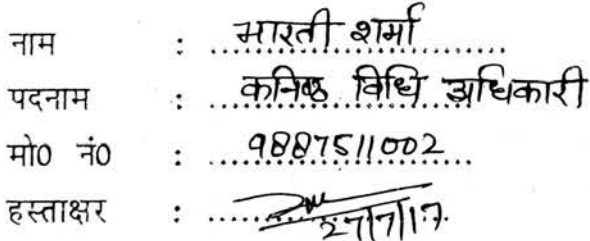 नाम : भारती शर्मा
पदनाम : कनिष्ठ विधि अधिकारी
मो0 नं0 : 9887511002
हस्ताक्षर : 27/7/17